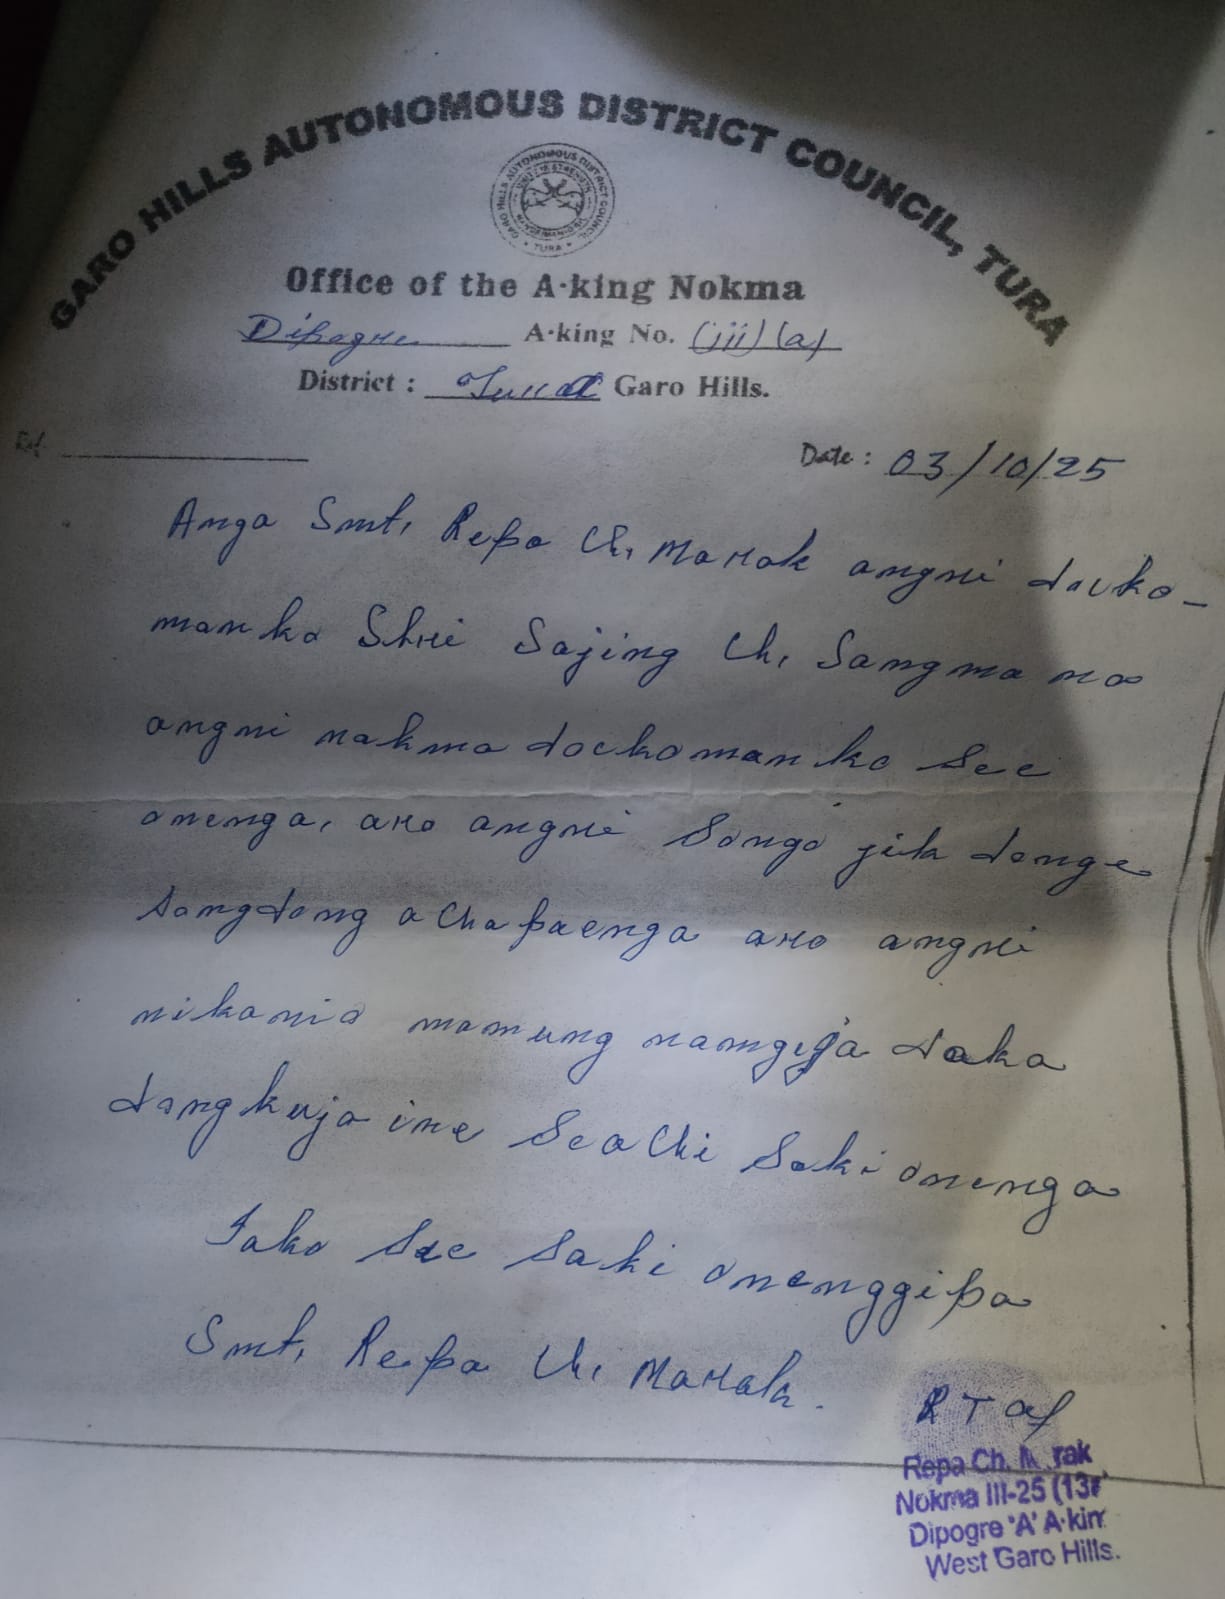 GARO HILLS AUTONOMOUS DISTRICT COUNCIL, TURA
GARO HILLS AUTONOMOUS DISTRICT COUNCIL
TURA
Office of the A·king Nokma
Dipogre A·king No. (iii) (a)
District : Tura Garo Hills.
Date : 03/10/25
Anga Smt. Repa Ch. Marak angni
manko Shri Sajing Ch. Sangma na
angni nokma dockomanko See
onenga, aro angni Songo jik donge
Sangdong achapaenga aro angni
nikania mamung namgija daka
dongkuja ine Seachi Saki onenga
Iako See Saki onenggipa
Smt. Repa Ch. Marak.
R T of
Repa Ch. M rak
Nokma III-25 (13
Dipogre 'A' A·kin
West Garo Hills.